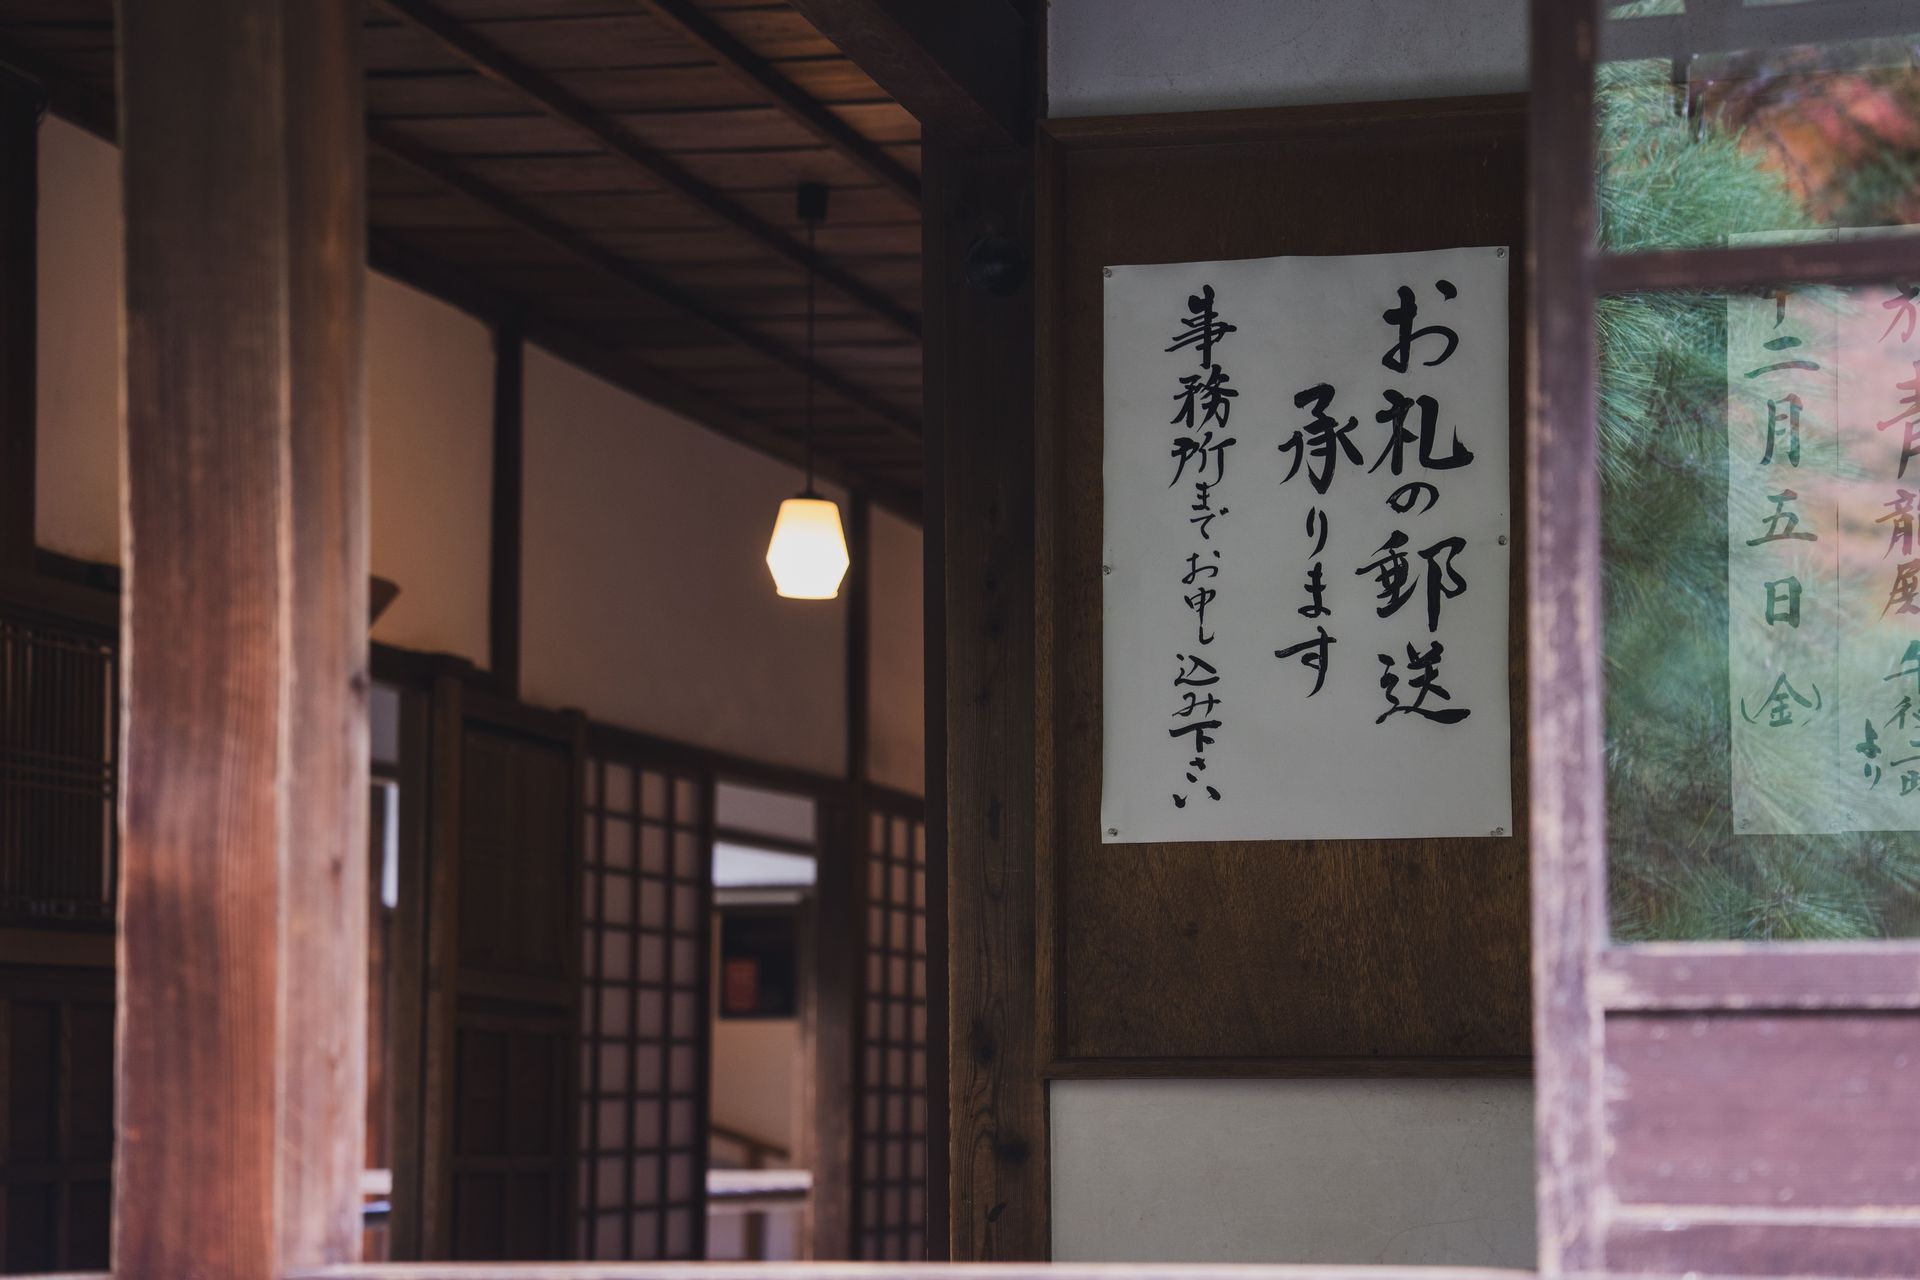 お札の郵送
承ります
事務所までお申し込み下さい
青龍殿 午後一時
より
十二月五日(金)